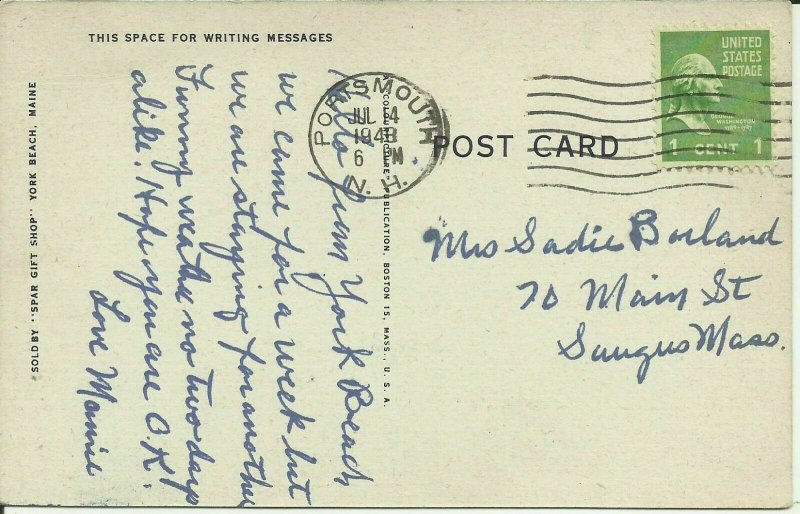 THIS SPACE FOR WRITING MESSAGES
Hello from York Beach,
we came for a week but
we are staying for another
Funny weather no two days
alike. Hope you are O.K.
Love Mamie
SOLD BY "SPAR GIFT SHOP" YORK BEACH, MAINE
PUBLICATION, BOSTON 15, MASS., U. S. A.
PORTSMOUTH
JUL 14
1948
6 PM
N. H.
POST CARD
UNITED
STATES
POSTAGE
GEORGE
WASHINGTON
1 CENT 1
Mrs Sadie Borland
70 Main St
Saugus Mass.